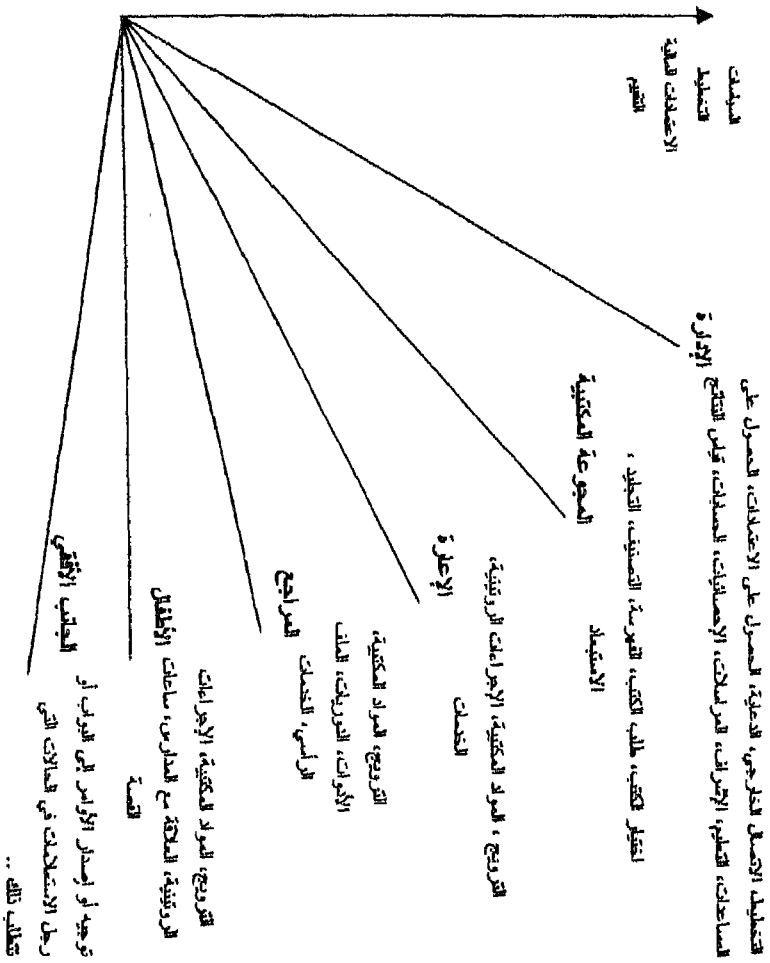 السياسات
التخطيط
الاعتمادات المالية
التقييم
التخطيط، الاتصال الخارجي، الدعاية، الحصول على الاعتمادات، الحصول على
المساعدات، التنظيم، الإشراف، المراسلات، الإحصائيات، الحسابات، قياس النتائج
الإدارة
اختيار الكتب، طلب الكتب، الفهرسة، التصنيف، التجليد،
الاستبعاد
المجموعة المكتبية
الترويج، المواد المكتبية، الإجراءات الروتينية،
الخدمات
الإعارة
الترويج، المواد المكتبية،
الأدوات، الدوريات، الملف
الرأسي، الخدمات
المراجع
الترويج، المواد المكتبية، الإجراءات
الروتينية، العلاقة مع المدارس، ساعات
القصة
الأطفال
الجانب الأفقي
توجيه أو إصدار الأوامر إلى البواب أو
رجل الاستعلامات في الحالات التي
تتطلب ذلك ..